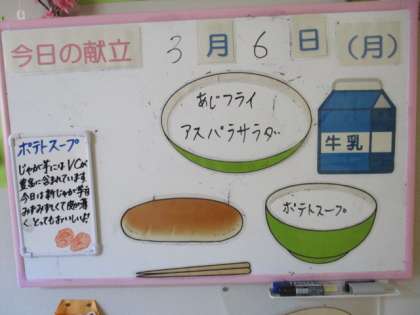 今日の献立 3月6日(月)
あじフライ
アスパラサラダ
牛乳
ポテトスープ
ポテトスープ
じゃが芋にはVCが
豊富に含まれています
今日は新じゃが芋
みずみずしくて皮が薄
く、とってもおいしいよ!